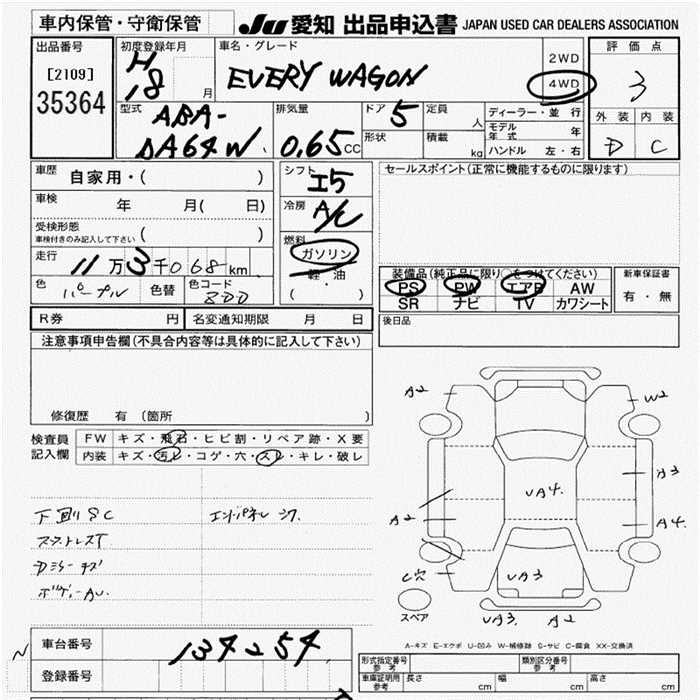 車内保管・守衛保管
JU 愛知 出品申込書 JAPAN USED CAR DEALERS ASSOCIATION
出品番号
[2109]
35364
初度登録年月
H
18 月
車名・グレード
EVERY WAGON
2WD
4WD
評価点
3
外装 内装
D C
型式
ABA-
DA64W
排気量
0.65 CC
ドア 5
形状
定員 人
積載 kg
ディーラー・並行
モデル年式 年
ハンドル 左・右
車歴 自家用・( )
車検 年 月( 日)
受検形態
車検付きのみ記入して下さい ( )
走行 11万3千068km
色 パープル 色替 カラーコードNo.
シフト I5
冷房 A/C
燃料
ガソリン
軽・油
( )
セールスポイント(正常に機能するものに限ります)
装備品(純正品に限り○をつけてください)
PS PW エアB AW
SR ナビ TV カワシート
新車保証書
有・無
R券 円 名変通知期限 月 日
後日品
注意事項申告欄(不具合内容等は具体的に記入して下さい)
修復歴 有 (箇所 )
検査員
記入欄
FW キズ・飛石・ヒビ割・リペア跡・X要
内装 キズ・汚レ・コゲ・穴・スレ・キレ・破レ
下回りSC
スストレスT
Dミラーキズ
ボデー AU.
A2
W2
A3
UA4.
A2
A4.
C穴
UA3
UA3.
A2
スペア
A-キズ E-エクボ U-凹み W-補修跡 S-サビ C-腐食 XX-交換済
車台番号 134254
登録番号
型式指定番号
参考
類別区分番号
参考
車庫証明用
参考
長さ cm 幅 cm 高さ cm